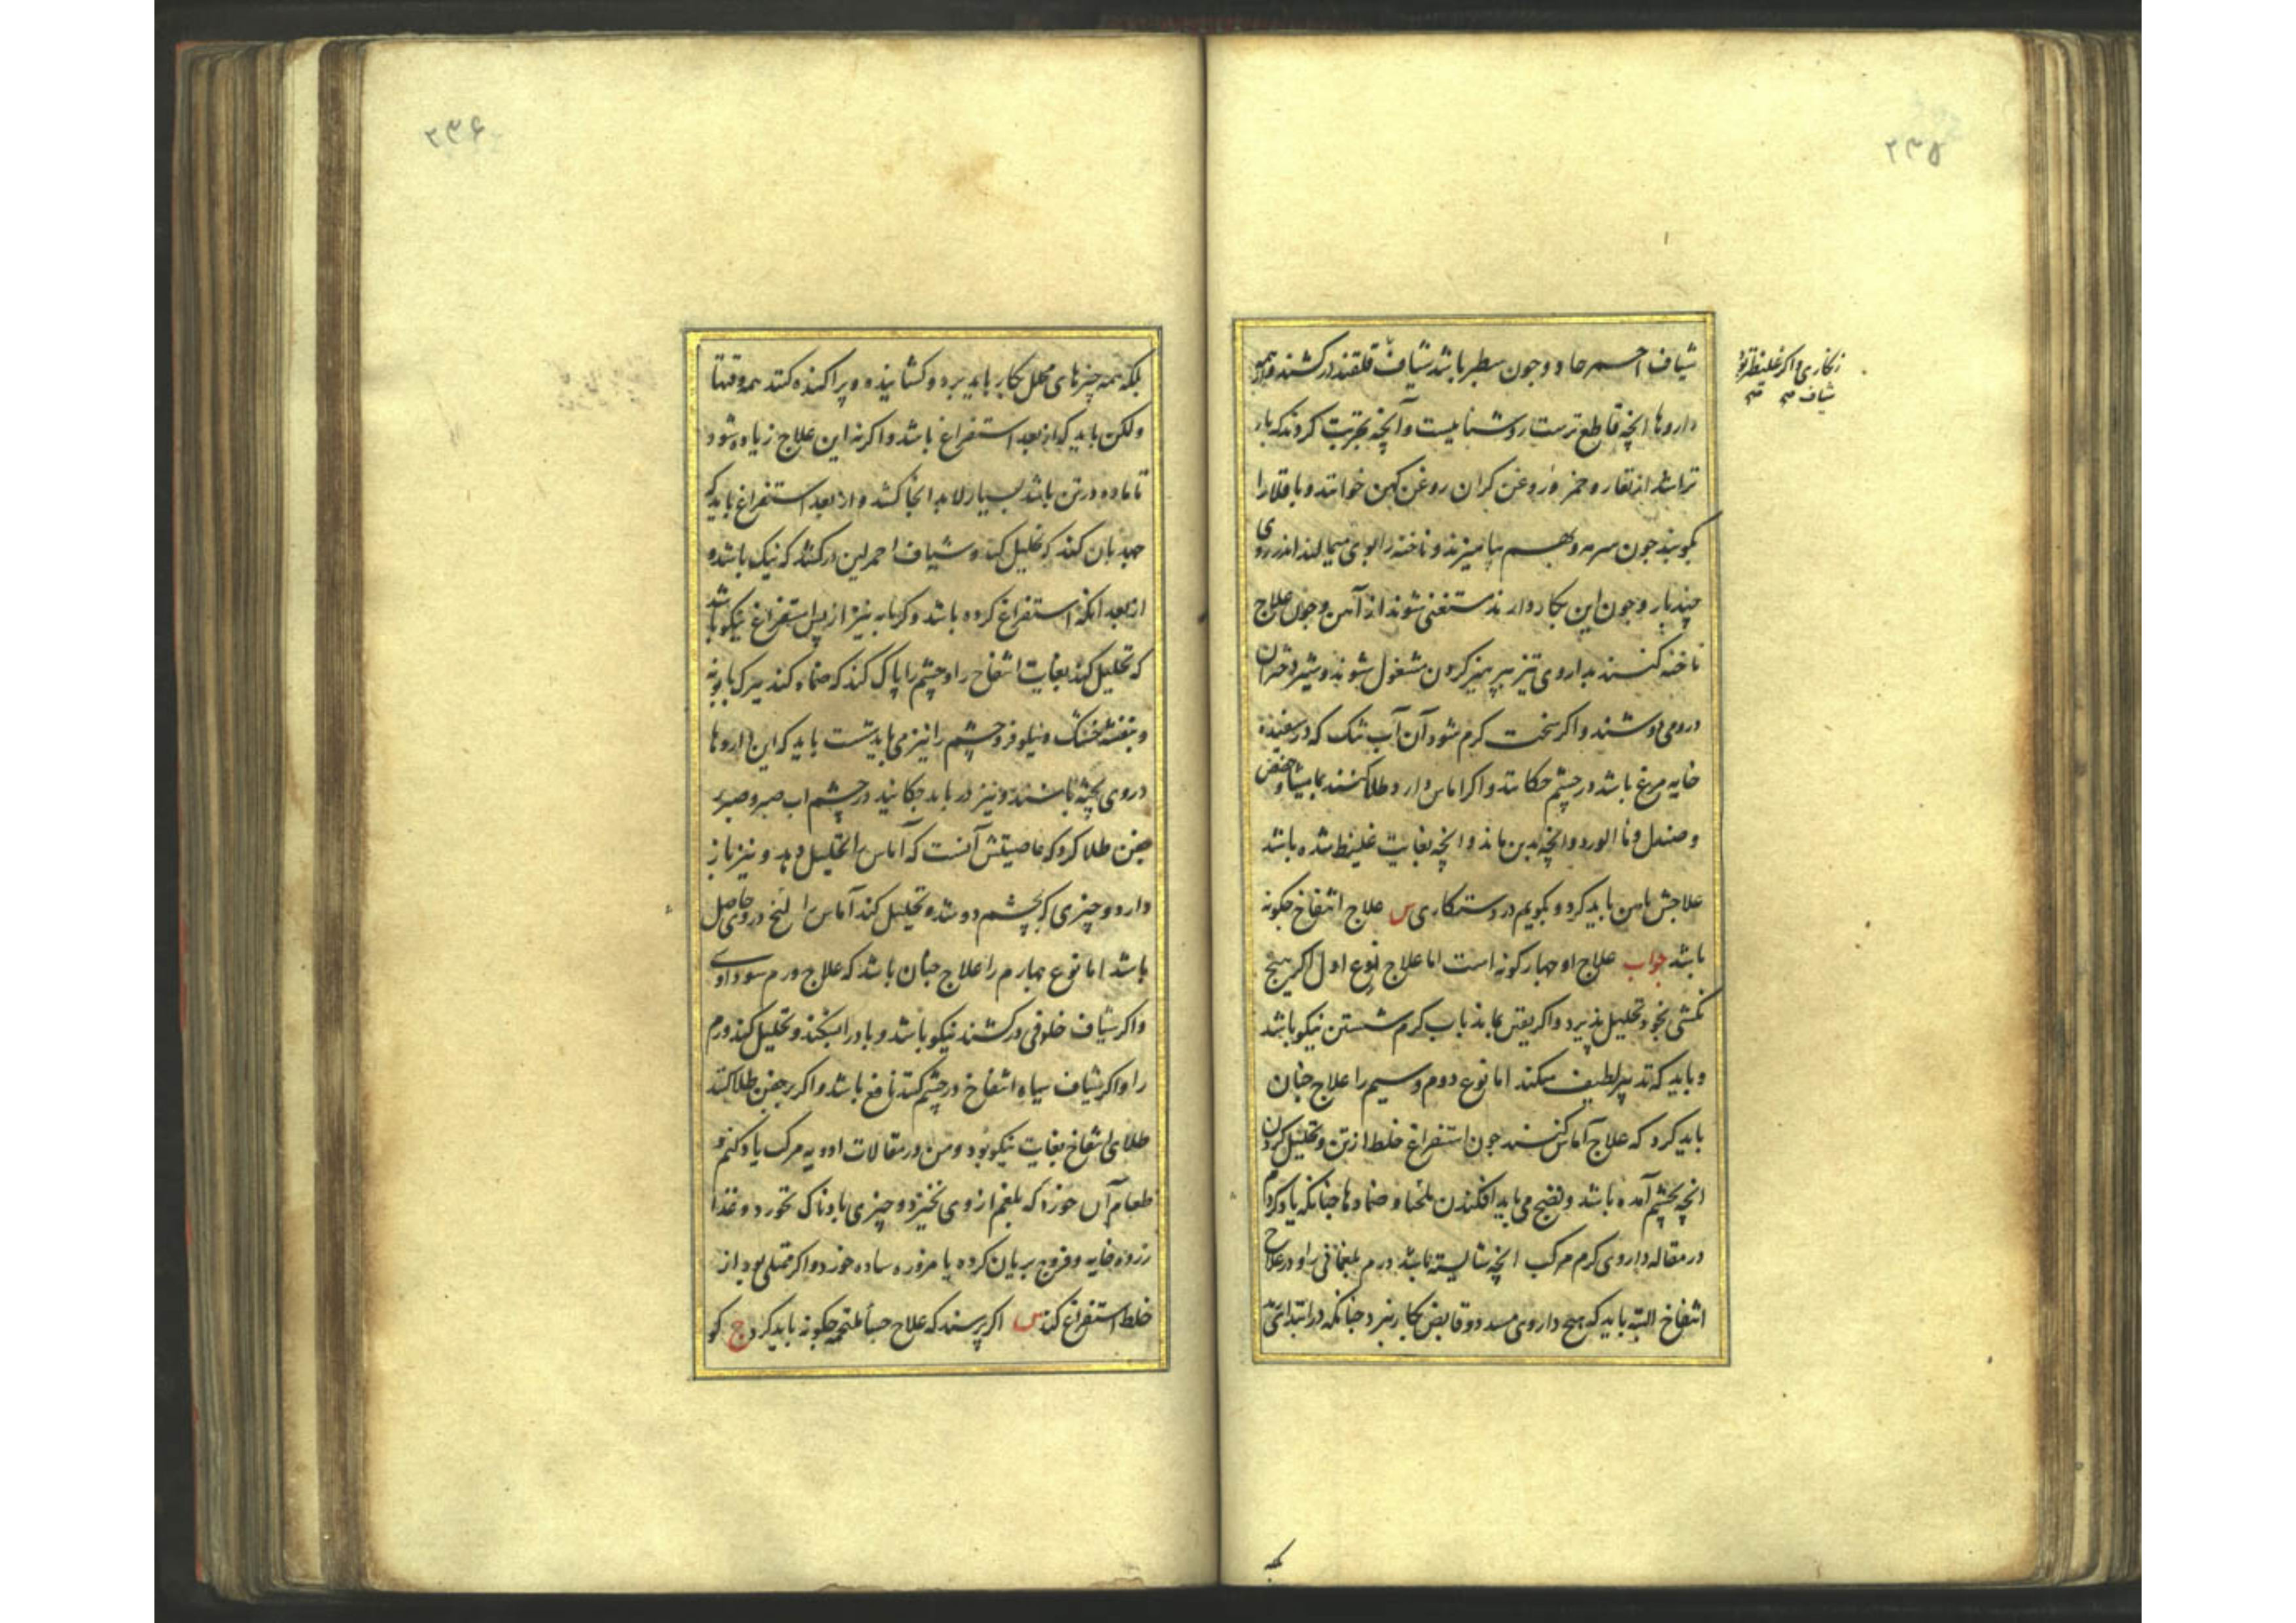 ۲۳۵
شیاف احمر حاد و جون سطبر باشد شیاف قلقند درکشند و از همه
زنکاری و اکر غلیظتر بود
شیاف صح
داروها انچه قاطع ترست روشنایست و آنچه بتجربت کردند که بار
تراشد از تغار و خمره و روغن کران روغن کهن خوانند و باقلا را
بکوبند جون سرمه و بهم بیامیزند و ناخنه را بوی میمالند اندر روی
چند بار و جون این بکار دارند مستغنی شوند از آهن و جون علاج
ناخنه کنند بداروی تیز بپرهیز کردن مشغول شوند و شیر دختران
درومی دوشند و اکر سخت کرم شود آن آب تنک که در سفیده
خایه مرغ باشد در چشم چکانند و اکر اماس دارد طلا کنند بمامیثا و حضض
و صندل و ما الورد و انچه بدین ماند و انچه بغایت غلیظ شده باشد
علاجش باهن باید کرد و بکویم در دستکاری س علاج انتفاخ جکونه
باشد جواب علاج او جهار کونه است اما علاج نوع اول اکر هیچ
نکشی بخود تحلیل پذیرد و اکر بعضی بماند باب کرم شستن نیکو باشد
و باید که تدبیر لطیف میکند اما نوع دوم و سیم را علاج جنان
باید کرد که علاج آماس کنند جون استفراغ خلط از تن و تحلیل کردن
انچه بچشم آمده باشد و نضج می باید افکندن بلخها و ضمادها جنانکه یاد کردم
در مقاله داروی کرم مرکب انچه شایسته باشد ورم بلغمانی را و در علاج
انتفاخ البته باید که هیچ داروی مسدد و قابض بکار نبرد جنانکه در ابتدای رمد
بلکه
۲۳۶
بلکه همه چیزهای محلل بکار باید برد و کشاینده و پراکنده کنند همه وقتها
ولکن باید که از بعد استفراغ باشد و اکر نه این علاج زیاده شود
تا ماده در تن باشد بسیار لابد انجا کشد و از بعد استفراغ باید که
جهد بان کند که تحلیل کند و شیاف احمر لین درکشد که نیک باشد و
از بعد انکه استفراغ کرده باشد و کرمابه نیز از پس استفراغ نیکو باشد
که تحلیل کند بغایت انتفاخ را و چشم را پاک کند که ضماد کند بسرکه بابونه
و بنفشه خشک و نیلوفر و چشم را نیز می باید شست باید که این داروها
دروی پخته باشند و نیز در باید جکانید در چشم اب صبر و صبر بر
جفن طلا کرد که خاصیتش آنست که آماس را تحلیل دهد و نیز باز
دارد و چیزی که بچشم دوشد و تحلیل کند آماس را انج دروی حاصل
باشد اما نوع جهارم را علاج جنان باشد که علاج ورم سوداوی
و اکر شیاف خلوقی درکشند نیکو باشد و باد را بشکند و تحلیل کند ورم
را و اکر شیاف سیاه انتفاخ در چشم کشد نافع باشد و اکر بر جفن طلا کند
طلای انتفاخ بغایت نیکو بود و من در مقالات ادویه مرکب یاد کنم و
طعام آن خورد که بلغم از وی نخیزد و چیزی بادناک نخورد و غذا
زرده خایه و فروج بریان کرده یا مزوره ساده خورد و اکر ممتلی بود از
خلط استفراغ کند س اکر پرسند که علاج جساء ملتحمه جکونه باید کرد ج کو